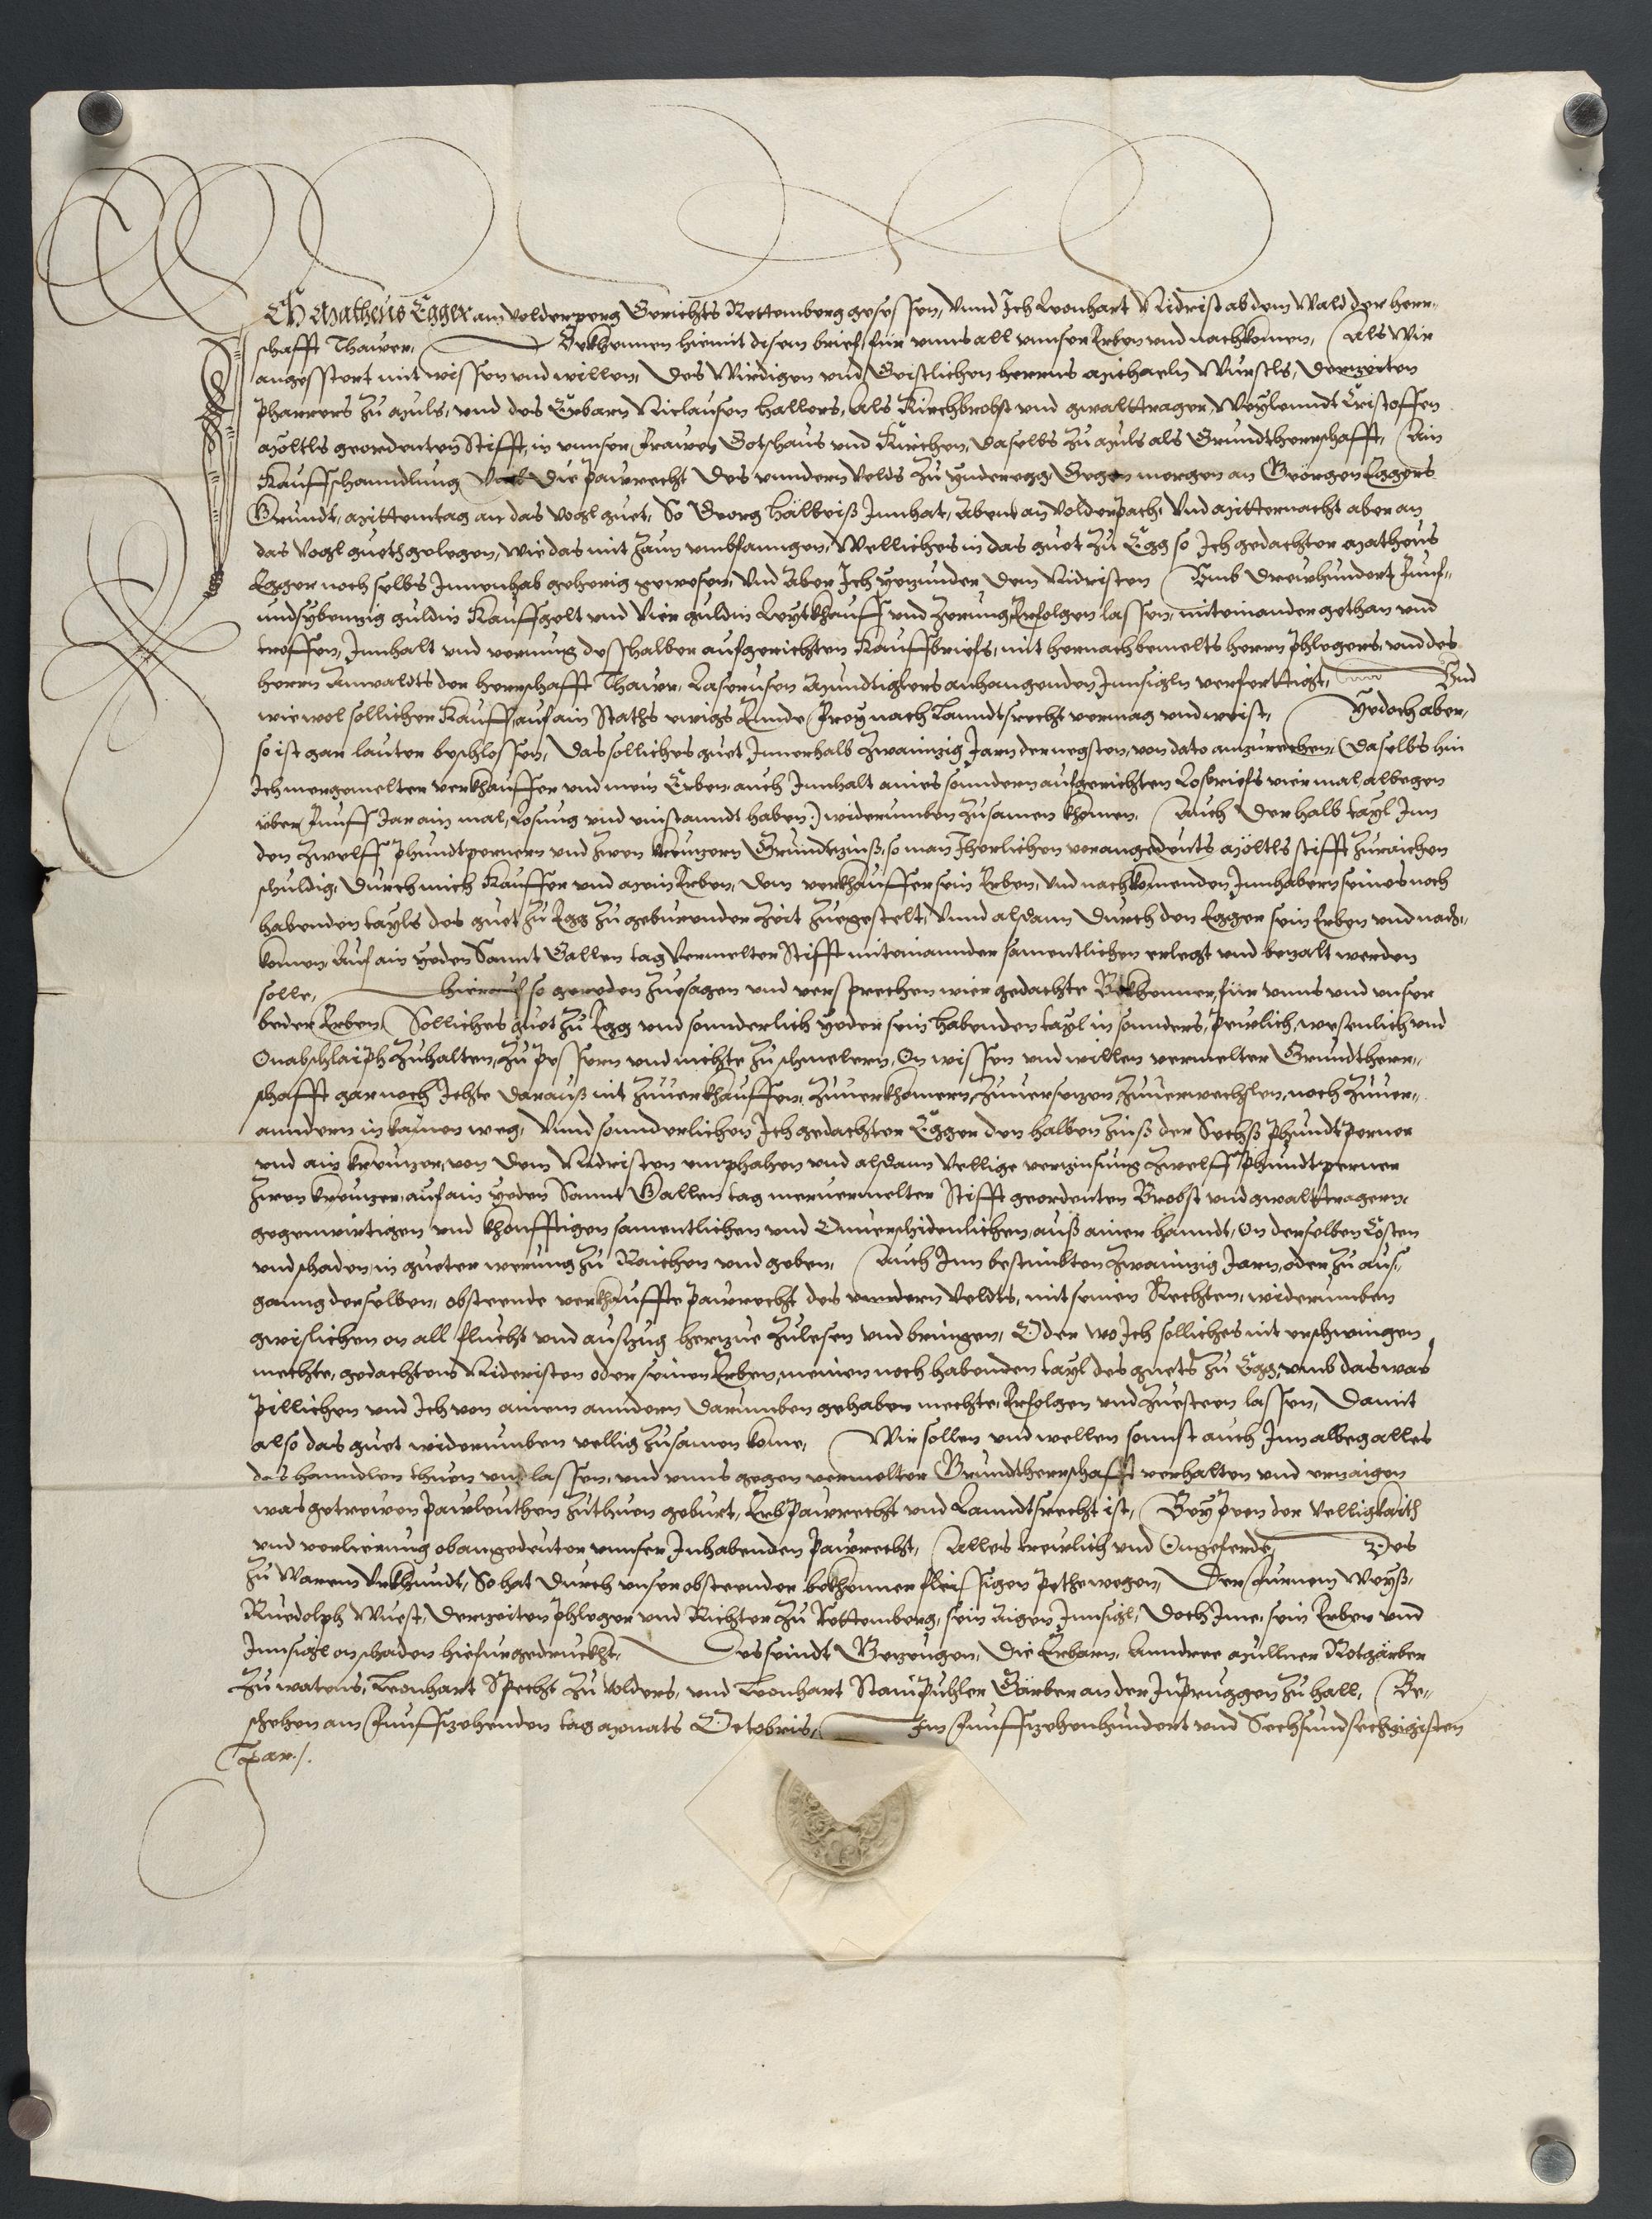 Ich Matheus Egger am Volderperg Gerichts Rettemberg gesessen, Vnnd Ich Leonhart Nidrist ab dem Wald der Herr-
schafft Thawer, Bekhennen hiemit disem brief, für vnns all vnnser Erben vnd nachkomen, Als Wir
angesstert mit wissen vnd willen, des Wirdigen vnd Geistlichen herrns Michaeln Würstls, derzeiten
Pharrers zu Muls, vnd des Erbarn Niclausen Hallers, als Kirchbrobst vnd gwalttrager, Weylenndt Cristoffen
Möltls geordenten Stifft, in vnnser Frawen Gotshaus vnd Kirchen, daselbs zu Muls als Grundtherrschafft, Ain
Kauffhanndlung Vmb die Paurecht des vnndern Velds zu Ynderegg, Gegen morgen an Geörgen Eggers
Grundt, Mittemtag an das Vogl guet, So Georg Hälbeiß Innhat, Abent an Volderpach, Vnd Mitternacht aber an
das Vogl gueth gelegen, wie das mit Zaun vmbfanngen, Welliches in das guet zu Egg so Ich gedachter Matheus
Egger noch selbs Innenhab geherig gewesen, Vnd aber Ich yezunder dem Nidristen Vmb drewhundert Funf-
undsybenzig guldin Kauffgelt vnd Vier guldin Leytkhauff vnd Zerung, Erfolgen lassen, miteinander gethan vnd
troffen, Innhalt vnd vermug deshalber aufgerichten Kauffbriefs, mit hernachbemelts herrn Phlegers, vnd des
herrn Anwaldts der herrschafft Thawer, Laserusen Mundtiglers anhangenden Innsigln verferttigt, Vnd
wiewol sollicher Kauff, auf ain Stäths ewigs Ennde Frey nach Lanndtsrecht vermag vnd weist, Yedoch aber,
so ist gar lauter beschlossen, Das solliches guet Innerhalb Zwainzig Jarn der negsten, von dato anzurechen, (Daselbs hin
Ich mergemelter verkhauffer vnd mein Erben, auch Innhalt aines sonndern aufgerichten Losbriefs viermal albegen
vber Funff Jar ain mal, Losung vnd einstanndt haben) widerumben zusamen khomen, Auch der halb tayl Inn
den Zwelff Phundtpernern vnd zwen kreuzern Grundtzinß, so man Jherlichen vorangedeuts Möltls stifft zuraichen
schuldig, durch mich Kauffer vnd Mein Erben, dem verkhauffer sein Erben, vnd nachkomenden Innhabern seines noch
habenden tayls des guet zu Egg zu geburender Zeit zuegestelt, Vnnd alsdann durch den Egger sein Erben vnd nach-
komen, Auf ain yeden Sannt Gallen tag Vermelter Stifft miteinannder samentlichen erlegt vnd bezalt werden
solle, Hierauf so gereden Zuesagen vnd versprechen wier gedachte Bekhenner, für vnns vnd vnser
beder Erben, Solliches guet zu Egg vnd sonnderlich yeder sein habenden tayl in sonnders, Peurlich, wesenlich vnd
Onabschlaiph zuhalten, zu pessern vnd nichte zu schmelern, On wissen vnd willen vermelter Grundtherr-
schafft gar noch Ichte darauß nit zuuerkhauffen, zuuerkhomern, zuuersezen, zuuerwechslen, noch zuuer-
anndern in kainen weg, Vnnd sonnderlichen Ich gedachter Egger den halben Zinß der Sechß Phundt Perner
vnd ain kreuzer, von dem Nidristen emphahen vnd alsdann Vellige verzinsung Zwelff Phundtperner
zwen kreuzer, auf ain yeden Sannt Gallen tag meruermelter Stifft geordenten Brobst vnd gwalttragern,
gegenwirtigen vnd khonfftigen samentlichen vnd Onuerschidenlichen, auß ainer hanndt, On derselben Cösten
vnd schaden, in gueter werung zu Raichen vnd geben, Auch Inn bestimbten Zwainzig Jarn, oder zu aus-
ganng derselben, obsteende verkhauffte Paurecht des vnndern Veldts, mit seinen Rechten, widerumben
gwislichen on all flucht vnd auszug herzue zulesen vnd bringen, Oder wo Ich solliches nit erschwingen
mechte, gedachtens Nideristen oder seinen Erben, meinen noch habenden tayl des guets zu Egg, vmb das was
Pillichen vnd Ich von ainem anndern darumben gehaben mechte, Erfolgen vnd zuesteen lassen, Damit
also das guet widerumben vellig zusamen kome, Wir sollen vnd wellen sonnst auch Inn albeg alles
das hanndlen thuen vnd lassen, vnd vnns gegen vermelter Grundtherrschafft verhalten vnd erzaigen
was getrewen Pawleuthen zuthuen geburt, Erb Paurecht vnd Lanndtsrecht ist, Bey Peen der Velligkaith
vnd verlierung obangedeuter vnnser Inhabenden Paurecht, Alles trewlich vnd Ongeferde, Des
zu Warem Vrkhundt, So hat durch vnser obsteender bekhenner fleissigen Pethewegen, Der Furnem Weyß,
Ruedolph Wuest, derzeiten Phleger vnd Richter zu Rettemberg, sein Aigen Innsigl, doch Ime, sein Erben vnd
Innsigl on schaden hiefurgedruckht, Des seindt Gezeugen, Die Erbarn, Anndree Mullner Rotgärber
zu Watens, Leonhart Specht zu Volders, vnd Leonhart Stainpuhler Gärber an der Inpruggen zu Hall, Be-
schehen am Funffzehenden tag Monats Octobris, Im Funffzehenhundert vnd Sechsundsechzigisten
Jar./.